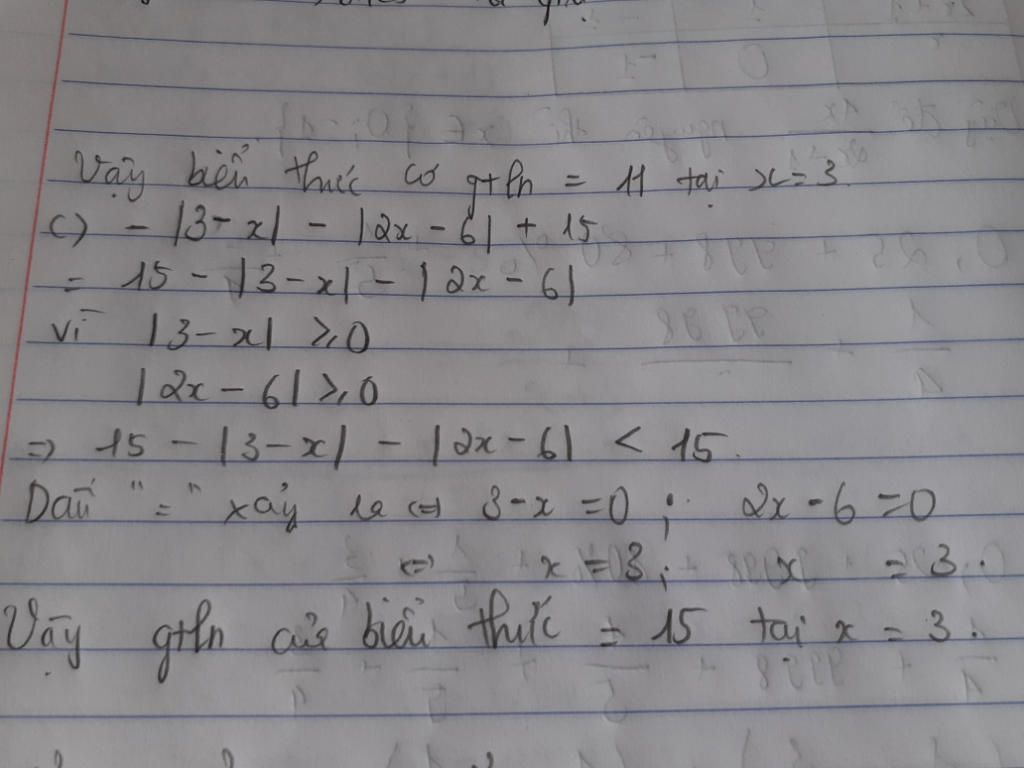 Vậy biểu thức có gtln = 11 tại x = 3.
c) - |3 - x| - |2x - 6| + 15
= 15 - |3 - x| - |2x - 6|
vì |3 - x| ≥ 0
|2x - 6| ≥ 0
=> 15 - |3 - x| - |2x - 6| < 15.
Dấu "=" xảy ra <=> 3 - x = 0 ; 2x - 6 = 0
<=> x = 3 ; x = 3.
Vậy gtln của biểu thức = 15 tại x = 3.